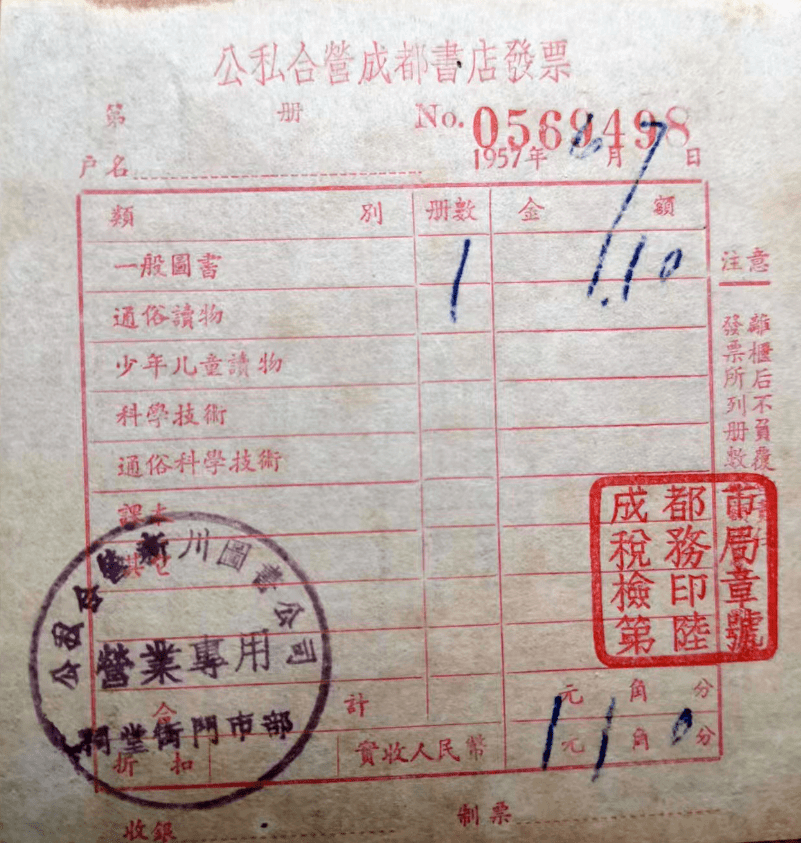 公私合營成都書店發票
第 册 No. 0569498
户名 1957年 6月7日
類別 册數 金額
一般圖書 1 1.10
通俗讀物
少年儿童讀物
科學技術
通俗科學技術
課本
其它
合計 元 角 分
折扣 實收人民幣 1元1角0分
收銀 制票
注意
離櫃后不負覆
發票所列册數
成都市
稅務局
檢印章
第陸號
川圖書公司
營業專用
祠堂街門市部